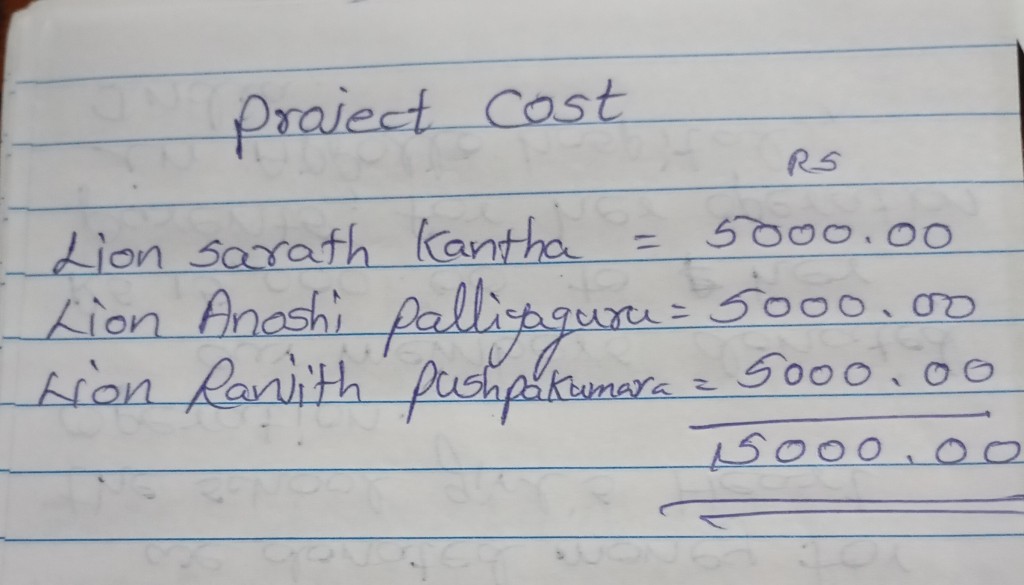 Project Cost
RS
Lion Sarath Kantha = 5000.00
Lion Anoshi Palliyaguru = 5000.00
Lion Ranjith Pushpakumara = 5000.00
15000.00